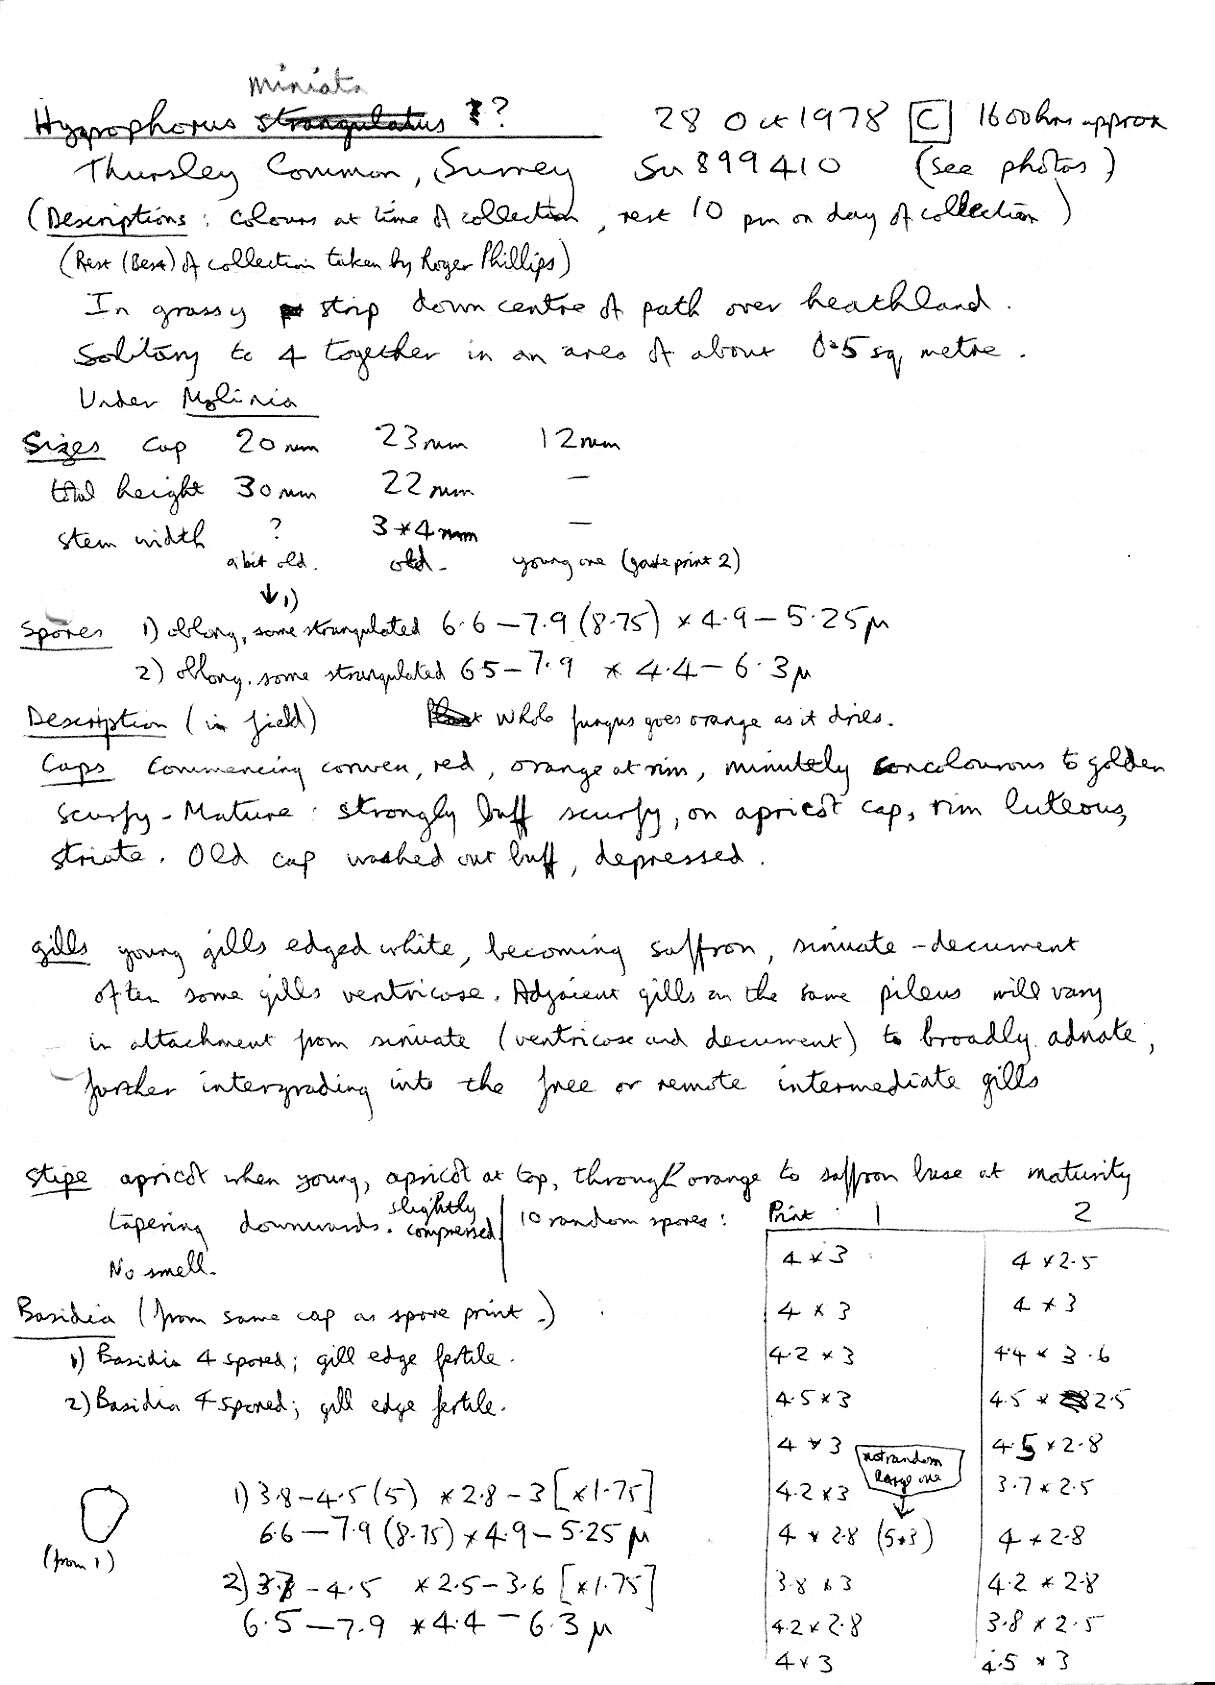 miniata
Hygrophorus strangulatus ?
28 Oct 1978 [C] 1600hrs approx
Thursley Common, Surrey SU 899410 (see photos)
(Descriptions: colours at time of collection, rest 10 pm on day of collection)
(Rest (Best) of collection taken by Roger Phillips)
In grassy strip down centre of path over heathland.
Solitary to 4 together in an area of about 0.5 sq, metre.
Under Molinia
Sizes cap 20mm 23mm 12mm
total height 30mm 22mm —
stem width ? 3*4mm —
a bit old. old. young one (gave print 2)
↓ 1)
Spores 1) oblong, some strangulated 6.6 – 7.9 (8.75) * 4.9 – 5.25 µ
2) oblong. some strangulated 65 – 7.9 * 4.4 – 6.3 µ
Description (in field) Whole fungus goes orange as it dries.
Caps Commencing convex, red, orange at rim, minutely concolourous to golden
scurfy – Mature: strongly buff scurfy, on apricot cap, rim luteous,
striate. Old cap washed out buff, depressed.
gills young gills edged white, becoming saffron, sinuate – decurrent
often some gills ventricose. Adjacent gills on the same pileus will vary
in attachment from sinuate (ventricose and decurrent) to broadly adnate,
further intergrading into the free or remote intermediate gills
Stipe apricot when young, apricot at top, through orange to saffron base at maturity
tapering downwards. slightly compressed
No smell.
10 random spores: Print: 1 2
4 * 3 4 * 2.5
4 * 3 4 * 3
4.2 * 3 4.4 * 3.6
4.5 * 3 4.5 * 2.5
4 * 3 4.5 * 2.8
not random
large one
↓
4.2 * 3 3.7 * 2.5
4 * 2.8 (5*3) 4 * 2.8
3.8 * 3 4.2 * 2.8
4.2 * 2.8 3.8 * 2.5
4 * 3 4.5 * 3
Basidia (from same cap as spore print.)
1) Basidia 4 spored; gill edge fertile.
2) Basidia 4 spored; gill edge fertile.
(from 1)
1) 3.8 – 4.5 (5) * 2.8 – 3 [*1.75]
6.6 – 7.9 (8.75) * 4.9 – 5.25 µ
2) 3.7 – 4.5 * 2.5 – 3.6 [*1.75]
6.5 – 7.9 * 4.4 – 6.3 µ